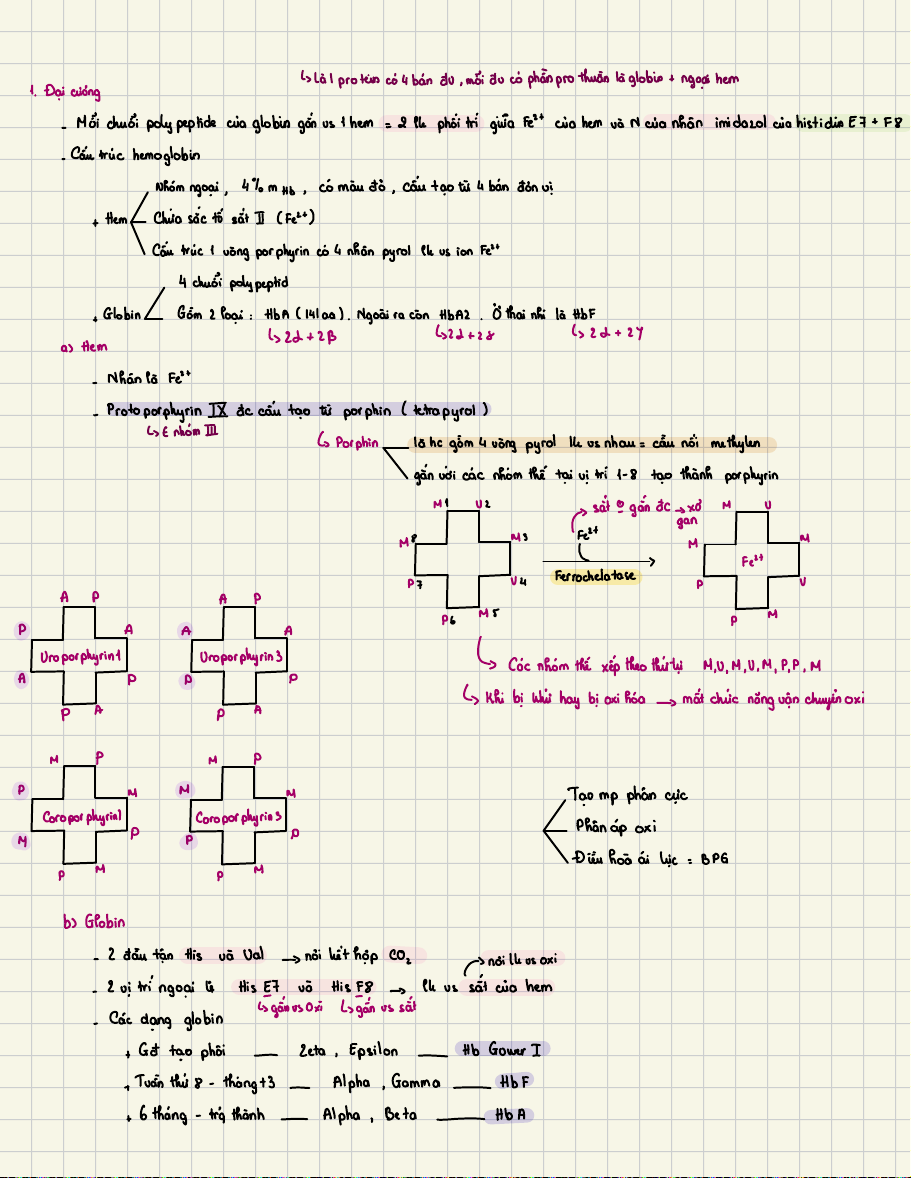 ↳ Là 1 protein có 4 bán đv, mỗi đv có phần pro thuần là globin + ngoại hem
1. Đại cương
- Mỗi chuỗi polypeptide của globin gắn vs 1 hem = 2 lk phối trí giữa Fe²⁺ của hem và N của nhân imidazol của histidin E7 + F8
- Cấu trúc hemoglobin
Nhóm ngoại, 4% m Hb, có màu đỏ, cấu tạo từ 4 bán đơn vị
+ Hem
Chứa sắc tố sắt II (Fe²⁺)
Cấu trúc 1 vòng porphyrin có 4 nhân pyrol lk vs ion Fe²⁺
4 chuỗi polypeptid
+ Globin
Gồm 2 loại : HbA (141aa). Ngoài ra còn HbA2. Ở thai nhi là HbF
↳ 2α + 2β ↳ 2α + 2δ ↳ 2α + 2γ
a) Hem
- Nhân là Fe²⁺
- Protoporphyrin IX đc cấu tạo từ porphin (tetrapyrol)
↳ ∈ nhóm III
↳ Porphin
là hc gồm 4 vòng pyrol lk vs nhau = cầu nối methylen
gắn với các nhóm thế tại vị trí 1-8 tạo thành porphyrin
M 1 V 2
M 3
V 4
M 5
P 6
P 7
M 8
sắt ko gắn đc → xơ gan
Fe²⁺
Ferrochelatase
M V
M M
Fe²⁺
P V
P M
A P
P A
Uroporphyrin 1
A P
P A
A P
A A
Uroporphyrin 3
P P
P A
↳ Các nhóm thế xếp theo thứ tự M,V,M,V,M,P,P,M
↳ Khi bị khử hay bị oxi hóa → mất chức năng vận chuyển oxi
M P
P M
Coroporphyrin1
M P
P M
M P
M M
Coroporphyrin 3
P P
P M
Tạo mp phân cực
Phân áp oxi
Điều hoà ái lực = BPG
b) Globin
- 2 đầu tận His và Val → nơi kết hợp CO₂
→ nơi lk vs oxi
- 2 vị trí ngoại là His E7 và His F8 → lk vs sắt của hem
↳ gắn vs Oxi ↳ gắn vs sắt
- Các dạng globin
+ Gđ tạo phôi — Zeta, Epsilon — Hb Gower I
+ Tuần thứ 8 - tháng+3 — Alpha, Gamma — HbF
+ 6 tháng - trg thành — Alpha, Beta — HbA